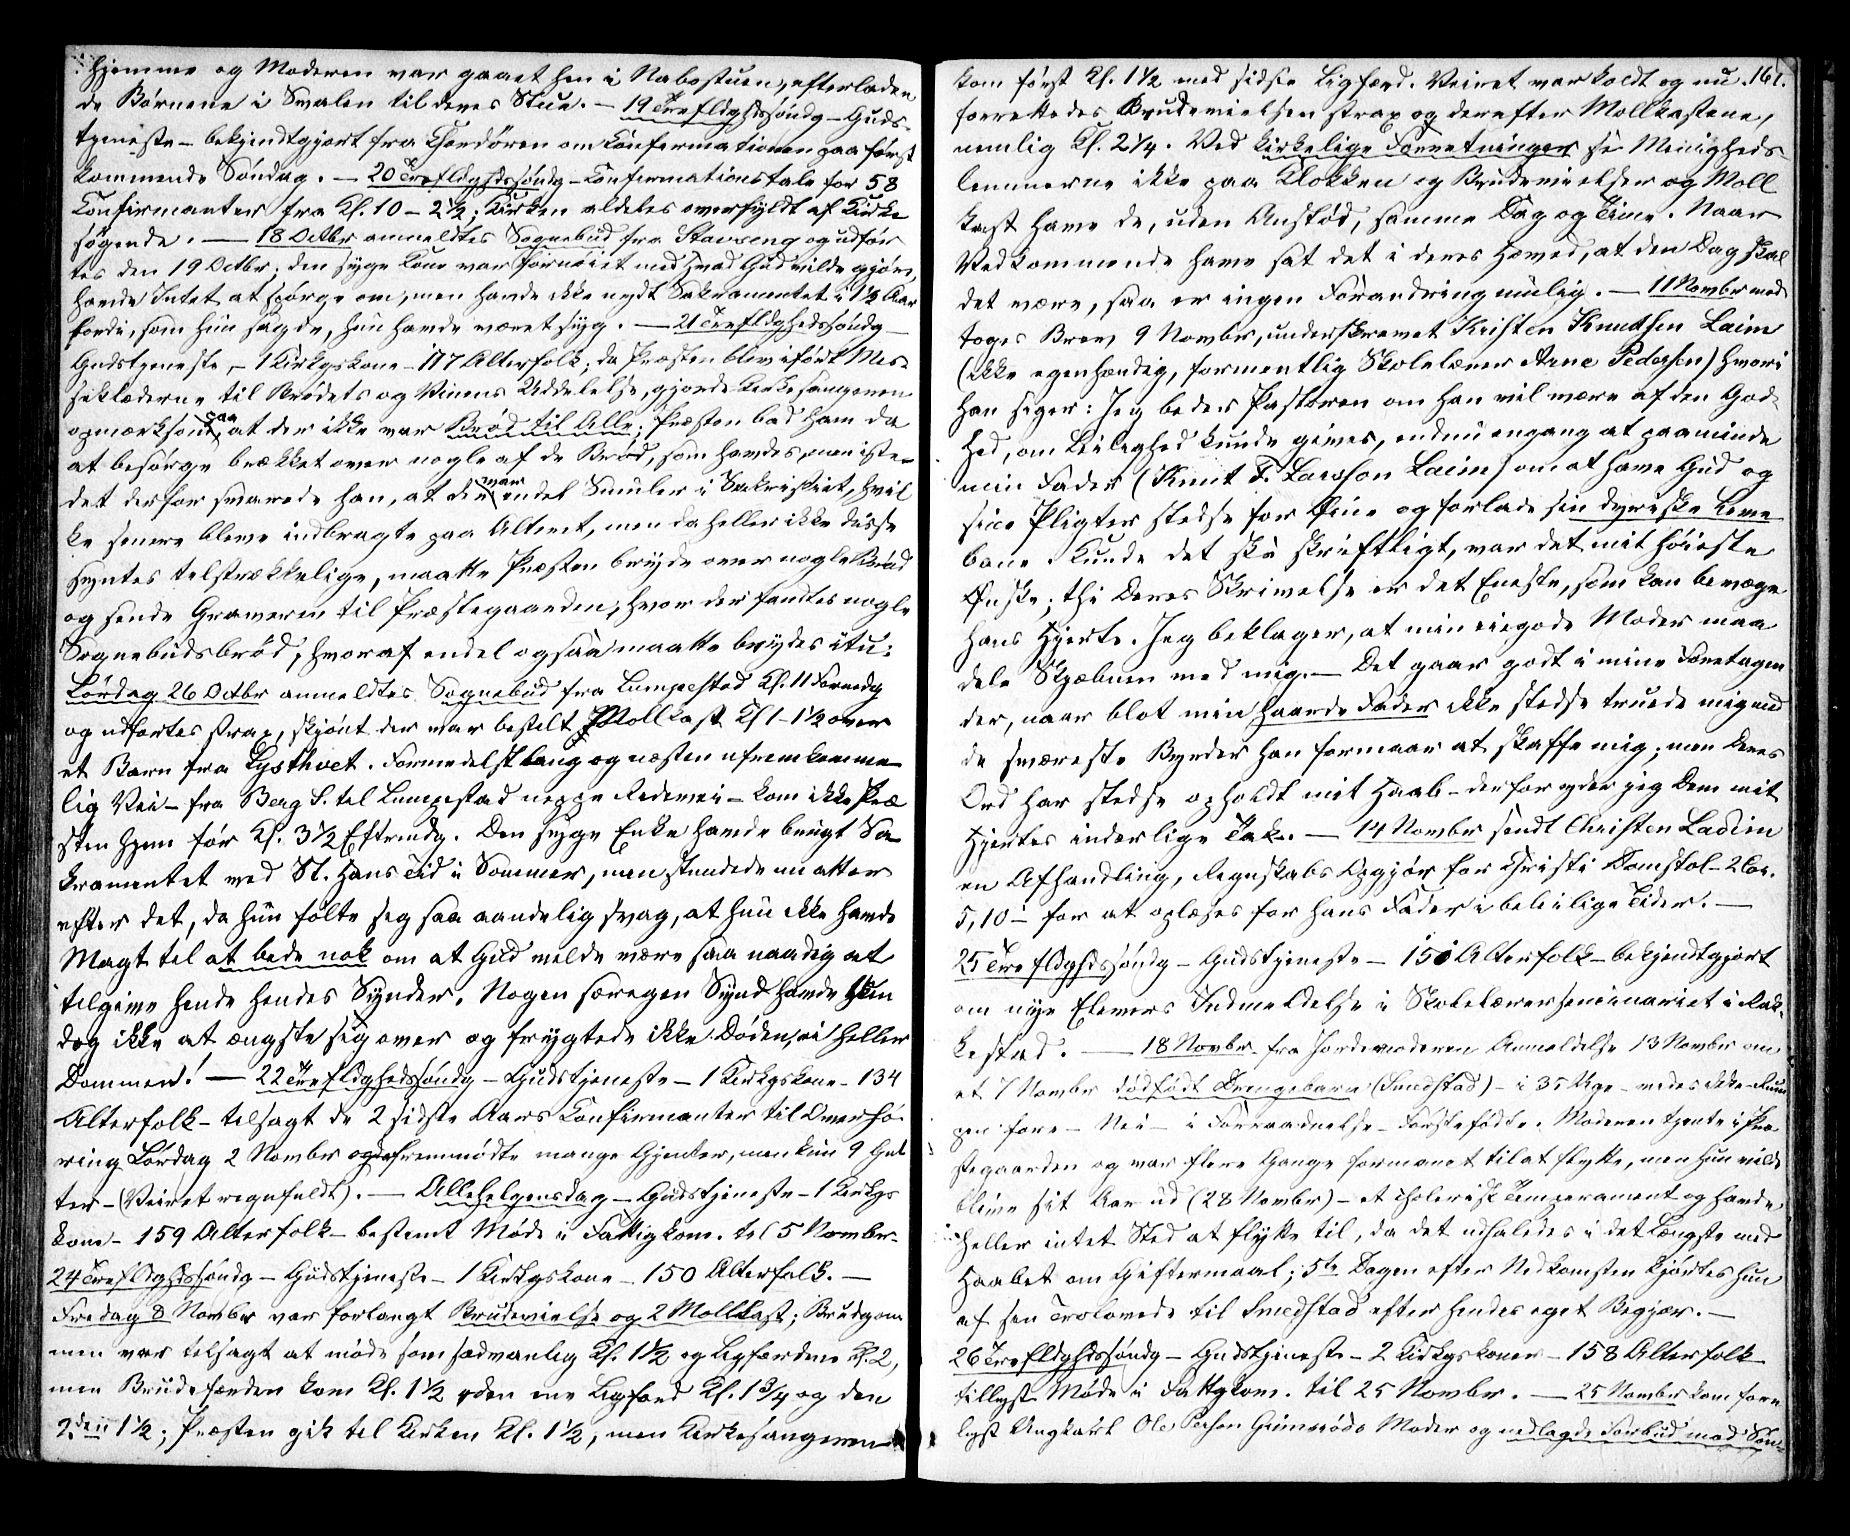 Hjemme og Moderen var gaaet hen i Nabostuen, efterladen
de Børnene i Svalen til deres Stue. – 19 Trefldghdssøndg – Guds-
tjeneste – bekjendtgjort fra Chordøren om Confirmationen paa først
kommende Søndag. – 20 Trefldghdssøndg – Confirmationstale for 58
Confirmanter fra Kl. 10 – 2½; Kirken aldeles overfyldt af Kirke
søgende. – 18 Octbr anmeldtes Sognebud fra Stavseng og udfør
tes den 19 Octbr; den syge Kone var fornøiet med hvad Gud vilde gjøre,
havde Intet at spørge om, men havde ikke nydt Sakramentet i 1½ Aar
fordi, som hun sagde, hun havde været syg. – 21 Trefldghedssøndg –
Gudstjeneste – 1 Kirkgskone – 117 Alterfolk; da Præsten blev iført Mes-
seklæderne til Brødets og Vinens Uddelelse, gjorde Kirkesangeren
opmærksom paa at der ikke var Brød til Alle; Præsten bad ham da
at besørge brækket over nogle af de Brød, som havdes, men iste-
det derfor svarede han, at der var endel Smuler i Sakristiet, hvil
ke senere bleve indbragte paa Alteret, men da heller ikke disse
syntes tilstrækkelige, maatte Præsten bryde over nogle Brød
og sende Graveren til Præstegaarden, hvor der fandtes nogle
Sognebudsbrød, hvoraf endel ogsaa maatte brydes itu.
Lørdag 26 Octbr anmeldtes Sognebud fra Lumpestad Kl. 11 Formdg
og udførtes strax, skjønt der var bestilt Mollkast Kl 1 – 1½ over
et Barn fra Lysthvet. Formedelst lang og næsten ufremkomme
lig Vei – fra Berg S. til Lumpestad neppe Redevei – kom ikke Præ
sten hjem før Kl. 3½ Eftrmdg. Den syge Enke havde brugt Sa
kramentet ved St. Hans Tid i Sommer, men stundede nu atter
efter det, da hun følte seg saa aandelig svag, at hun ikke havde
Magt til at bede nok om at Gud vilde være saa naadig at
tilgive hende hendes Synder. Nogen særegen Synd havde hun
dog ikke at ængste sig over og frygtede ikke Døden, ei heller
Dommen! – 22 Trefldghedssøndg – Gudstjeneste – 1 Kirkgskone – 134
Alterfolk – tilsagt de 2 sidste Aars Confirmanter til Overhø-
ring Lørdag 2 Novmbr og da fremmødte mange Gjenter, men kun 9 Gut
ter – (Veiret regnfuldt). – Allehelgensdag – Gudstjeneste – 1 Kirkgs
kone – 159 Alterfolk – bestemt Møde i Fattigkom. til 5 Novmbr.
24 Trefldghdssøndg – Gudstjeneste – 1 Kirkgskone – 150 Alterfolk. –
Fredag 8 Novmbr var forlangt Brudevielse og 2 Mollkast; Brudgom
men var tilsagt at møde som sædvanlig Kl. 1½ og Ligfærdene Kl. 2,
men Brudefærden kom Kl. 1½ den ene Ligfærd Kl. 1¾ og den
2den 1½; Præsten gik til Kirken Kl. 1½, men Kirkesangeren
161.
kom først Kl. 1½ med sidste Ligfærd. Veiret var koldt og nu
forrettedes Brudevielsen strax og derefter Mollkastene,
nemlig Kl. 2¼. Ved kirkelige Forretninger se Menigheds-
lemmerne ikke paa Klokken og Brudevielser og Moll
kast have de, uden Anstød, samme Dag og Time. Naar
Vedkommende have sat det i deres Hoved, at den Dag skal
det være, saa er ingen Forandring mulig. – 11 Novmbr mod
toges Brev 9 Novmbr, underskrevet Kristen Knudsen Laim
(ikke egenhændig, formentlig Skolelærer Arne Pedersen) hvori
han siger: Jeg beder Pastoren om han vil være af den God-
hed, om Leilighed kunde gives, endnu engang at paaminde
min Fader (Knut T. Larsson Laim) om at have Gud og
sine Pligter stedse for Øine og forlade sin dyriske Leve
bane. Kunde det ske skriftligt, var det mit høieste
Ønske; thi Deres Skrivelse er det Eneste, som kan bevæge
hans Hjerte. Jeg beklager, at min eiegode Moder maa
dele Skjæbnen med mig. – Det gaar godt i mine Foretagen
der, naar blot min haarde Fader ikke stedse truede mig med
de sværeste Byrder han formaar at skaffe mig; men Deres
Ord har stedse opholdt mit Haab – derfor yder jeg Dem mit
Hjertes inderlige Tak. – 14 Novmbr sendt Christen Ladim
en Afhandling, Regnskabs Opgjør for Christi Domstol – 2 Cor.
5,10 – for at oplæses for hans Fader i beleilige Tider. –
25 Trefldghdssøndg – Gudstjeneste – 151 Alterfolk – bekjendtgjort
om nye Elevers Indmeldelse i Skolelærerseminariet i Rak-
kestad. – 18 Novmbr fra Jordemoderen Anmeldelse 13 Novmbr om
et 7 Novmbr dødfødt Drengebarn (Smedstad) – i 35 Uge – vedes ikke –
– Nei – i Forraadnelse – Førstefødte. Moderen tjente i Præ
stegaarden og var flere Gange formanet til at flytte, men hun vilde
blive sit Aar ud (28 Novmbr) – et cholerisk Temperament og havde
heller intet Sted at flytte til, da det udhaledes i det Længste med
Haabet om Giftermaal; 5te Dagen efter Nedkomsten kjørtes hun
af sin Trolovede til Smedstad efter hendes eget Begjær. –
26 Trefldghdssøndg – Gudstjeneste – 2 Kirkgskoner – 158 Alterfolk
tillyst Møde i Fattgkom. til 25 Novmbr. – 25 Novmbr kom foru
lyst Ungkarl Ole Moder og nedlagde Forbud mod Søn-